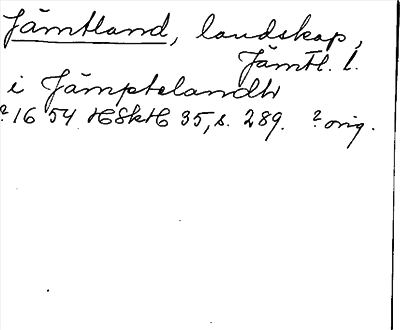 Jämtland, landskap,
Jämtl. l.
i Jämptelandh
?1654 HSkH 35, s. 289. ? orig.